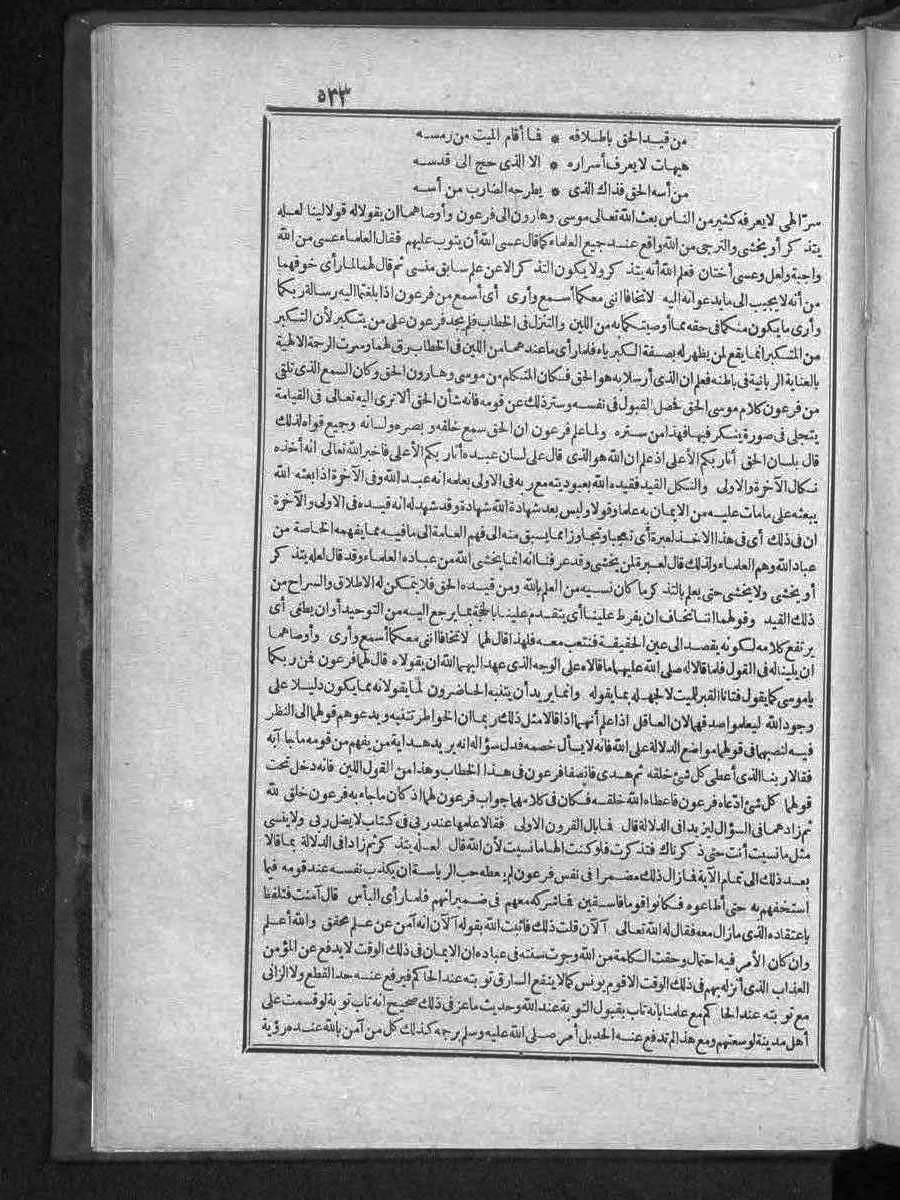 ٥٣٣
من قيد الحق باطلاقه * فما أقام الميت من رمسه
هيهات لا يعرف أسراره * الا الذى حج الى قدسه
من أسه الحق فذاك الذى * يطرحه الضارب من أسه
سرّ الهى لا يعرفه كثير من الناس بعث الله تعالى موسى وهارون الى فرعون وأوصاهما ان يقولا له قولا لينا لعله
يتذكر أو يخشى والترجى من الله واقع عند جميع العلماء كما قال عسى الله أن يتوب عليهم فقال العلماء عسى من الله
واجبة ولعل وعسى أختان فعلم الله أنه يتذكر ولا يكون التذكر الا عن علم سابق منسى ثم قال لهما لما رأى خوفهما
من أنه لا يجيب الى ما يدعوانه اليه لا تخافا اننى معكما أسمع وأرى أى أسمع من فرعون اذا بلغتما اليه رسالة ربكما
وأرى ما يكون منكما فى حقه مما أوصيتكما به من اللين والتنزل فى الخطاب فلم يجد فرعون على من يتكبر لأن التكبر
من المتكبر انما يقع لمن يظهر له بصفة الكبرياء فلما رأى ما عندهما من اللين فى الخطاب رق لهما وسرت الرحمة الالهية
بالعناية الربانية فى باطنه فعلم ان الذى أرسلا به هو الحق فكان المتكلم من موسى وهارون الحق وكان السمع الذى تلقى
من فرعون كلام موسى الحق فحصل القبول فى نفسه وستر ذلك عن قومه فانه شأن الحق ألا ترى اليه تعالى فى القيامة
يتجلى فى صورة ينكر فيها فهذا من ستره ولما علم فرعون ان الحق سمع خلقه وبصره ولسانه وجميع قواه لذلك
قال بلسان الحق أنا ربكم الأعلى اذ علم ان الله هو الذى قال على لسان عبده أنا ربكم الأعلى فأخبر الله تعالى انه أخذه
نكال الآخرة والاولى والنكل القيد فقيده الله بعبوديته مع ربه فى الاولى بعلمه انه عبد الله وفى الآخرة اذا بعثه الله
يبعثه على ما مات عليه من الايمان به علما وقولا وليس بعد شهادة الله شهادة وقد شهد له انه قيده فى الاولى والآخرة
ان فى ذلك أى فى هذا الاخذ لعبرة أى تعجبا وتجاوزا مما يسبق منه الى فهم العامة الى ما فيه مما يفهمه الخاصة من
عباد الله وهم العلماء ولذلك قال لعبرة لمن يخشى وقد عرفنا انه انما يخشى الله من عباده العلماء وقد قال لعله يتذكر
أو يخشى ولا يخشى حتى يعلم بالتذكر ما كان نسيه من العلم بالله ومن قيده الحق فلا يتمكن له الاطلاق والسراح من
ذلك القيد وقولهما اننا نخاف ان يفرط علينا أى يتقدم علينا بالحجة بما يرجع اليه من التوحيد أو ان يطغى أى
يرتفع كلامه لكونه يقصد الى عين الحقيقة فنتعب معه فلهذا قال لهما لا تخافا اننى معكما أسمع وأرى وأوصاهما
ان يلينا له فى القول فلما قالا له صلى الله عليهما ما قالاه على الوجه الذى عهد اليهما الله ان يقولاه قال لهما فرعون فمن ربكما
يا موسى كما يقول فتانا القبر للميت لا لجهله بما يقوله وانما يريد أن يتنبه الحاضرون لما يقولانه مما يكون دليلا على
وجود الله ليعلموا صدقهما لان العاقل اذا علم أنهما اذا قالا مثل ذلك ربما ان الخواطر تتنبه ويدعوهم قولهما الى النظر
فيه لنصبهما فى قولهما مواضع الدلالة على الله فانه لا يسأل خصمه فدل سؤاله انه يريد هداية من يفهم من قومه ما جا آبه
فقالا ربنا الذى أعطى كل شئ خلقه ثم هدى فانصفا فرعون فى هذا الخطاب وهذا من القول اللين فانه دخل تحت
قولهما كل شئ ادّعاه فرعون فاعطاه الله خلقه فكان فى كلامهما جواب فرعون لهما اذ كان ما جاء به فرعون خلق لله
ثم زادهما فى السؤال ليزيدا فى الدلالة قال فما بال القرون الاولى فقالا علمها عند ربى فى كتاب لا يضل ربى ولا ينسى
مثل ما نسيت أنت حتى ذكرناك فتذكرت فلو كنت الها ما نسيت لأن الله قال لعله يتذكر ثم زادا فى الدلالة بما قالا
بعد ذلك الى تمام الآية فما زال ذلك مضمرا فى نفس فرعون لم يعطه حب الرياسة ان يكذب نفسه عند قومه فيما
استخفهم به حتى أطاعوه فكانوا قوما فاسقين فما شركه معهم فى ضمير انهم فلما رأى البأس قال آمنت فتلفظ
باعتقاده الذى ما زال معه فقال له الله تعالى آلآن قلت ذلك فأثبت الله بقوله آلآن انه آمن عن علم محقق والله أعلم
وان كان الأمر فيه احتمال وحقت الكلمة من الله وجرت سنته فى عباده ان الايمان فى ذلك الوقت لا يدفع عن المؤمن
العذاب الذى أنزله بهم فى ذلك الوقت الا قوم يونس كما لا ينفع السارق توبته عند الحاكم فيرفع عنه حد القطع ولا الزانى
مع توبته عند الحاكم مع علمنا بانه تاب بقبول التوبة عند الله وحديث ماعز فى ذلك صحيح انه تاب توبة لو قسمت على
أهل مدينة لوسعتهم ومع هذا لم تدفع عنه الحد بل أمر صلى الله عليه وسلم برجمه كذلك كل من آمن بالله عند رؤية